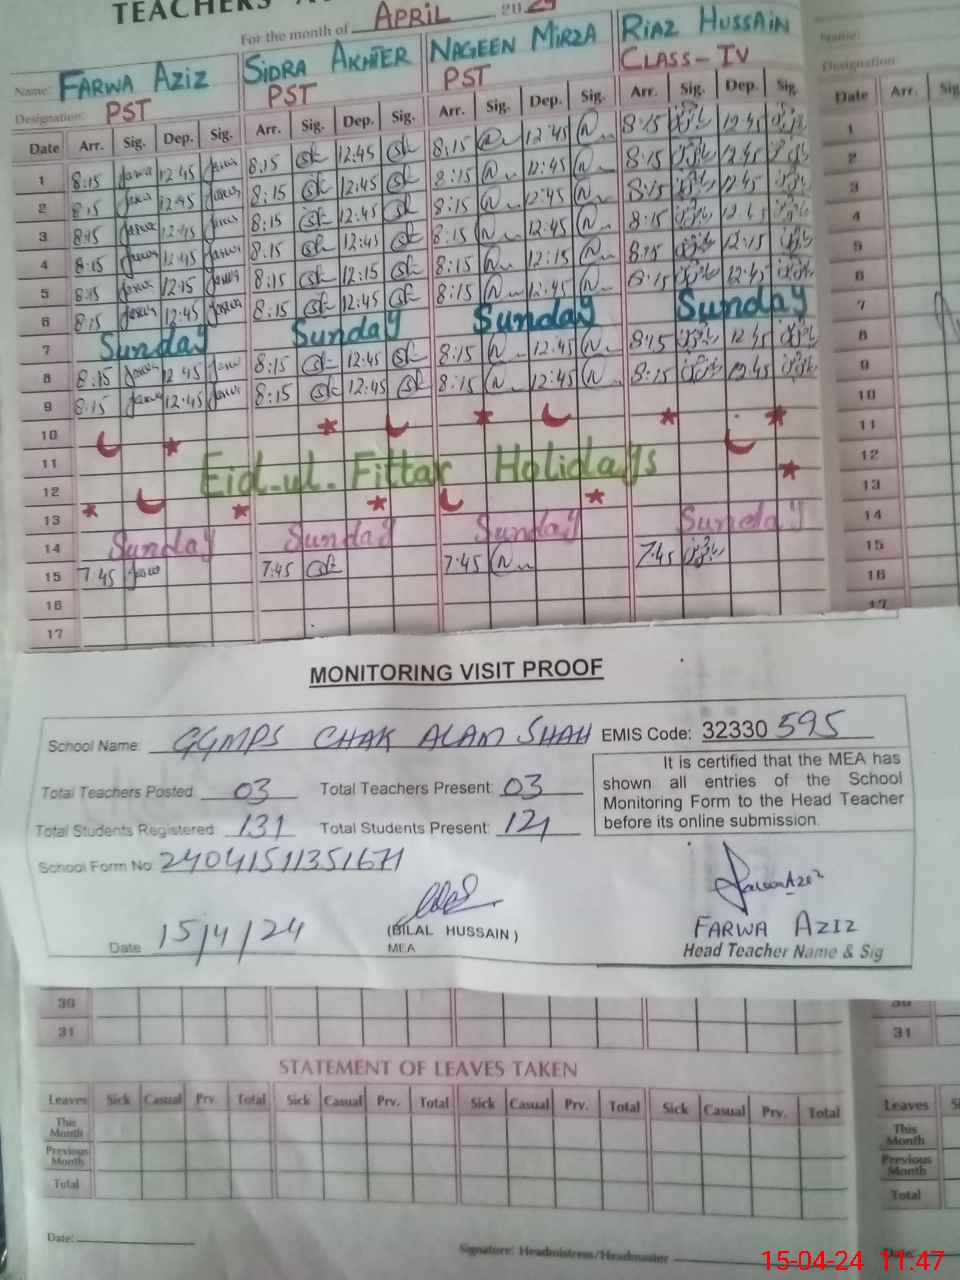 TEACHERS
For the month of APRIL 2024
Name: FARWA AZIZ SIDRA AKHTER NAGEEN MIRZA RIAZ HUSSAIN Name:
Designation: PST PST PST CLASS-IV Designation
Date Arr. Sig. Dep. Sig. Arr. Sig. Dep. Sig. Arr. Sig. Dep. Sig. Arr. Sig. Dep. Sig. Date Arr. Sig
1 8:15 12:45 8:15 12:45 8:15 12:45 8:15 12:45 1
2 8:15 12:45 8:15 12:45 8:15 12:45 8:15 12:45 2
3 8:15 12:45 8:15 12:45 8:15 12:45 8:15 12:45 3
4 8:15 12:45 8:15 12:45 8:15 12:45 8:15 4
5 8:15 12:15 8:15 12:15 8:15 12:15 8:15 12:15 5
6 8:15 12:45 8:15 12:45 8:15 12:45 8:15 12:45 6
7 Sunday Sunday Sunday Sunday 7
8 8:15 12:45 8:15 12:45 8:15 12:45 8:15 12:45 8
9 8:15 12:45 8:15 12:45 8:15 12:45 8:15 12:45 9
10 10
11 Eid-ul-Fittar Holidays 11
12 12
13 13
14 Sunday Sunday Sunday Sunday 14
15 7:45 7:45 7:45 7:45 15
16 16
17 17
MONITORING VISIT PROOF
School Name: GGMPS CHAK ALAM SHAH EMIS Code: 32330 595
Total Teachers Posted: 03 Total Teachers Present: 03
Total Students Registered 131 Total Students Present: 121
It is certified that the MEA has
shown all entries of the School
Monitoring Form to the Head Teacher
before its online submission.
School Form No 24041511351671
Date 15/4/24
(BILAL HUSSAIN)
MEA
FARWA AZIZ
Head Teacher Name & Sig
30 30
31 31
STATEMENT OF LEAVES TAKEN
Leaves Sick Casual Prv. Total Sick Casual Prv. Total Sick Casual Prv. Total Sick Casual Prv. Total Leaves
This Month This Month
Previous Month Previous Month
Total Total
Date: Signature: Headmistress/Headmaster Date:
15-04-24 11:47